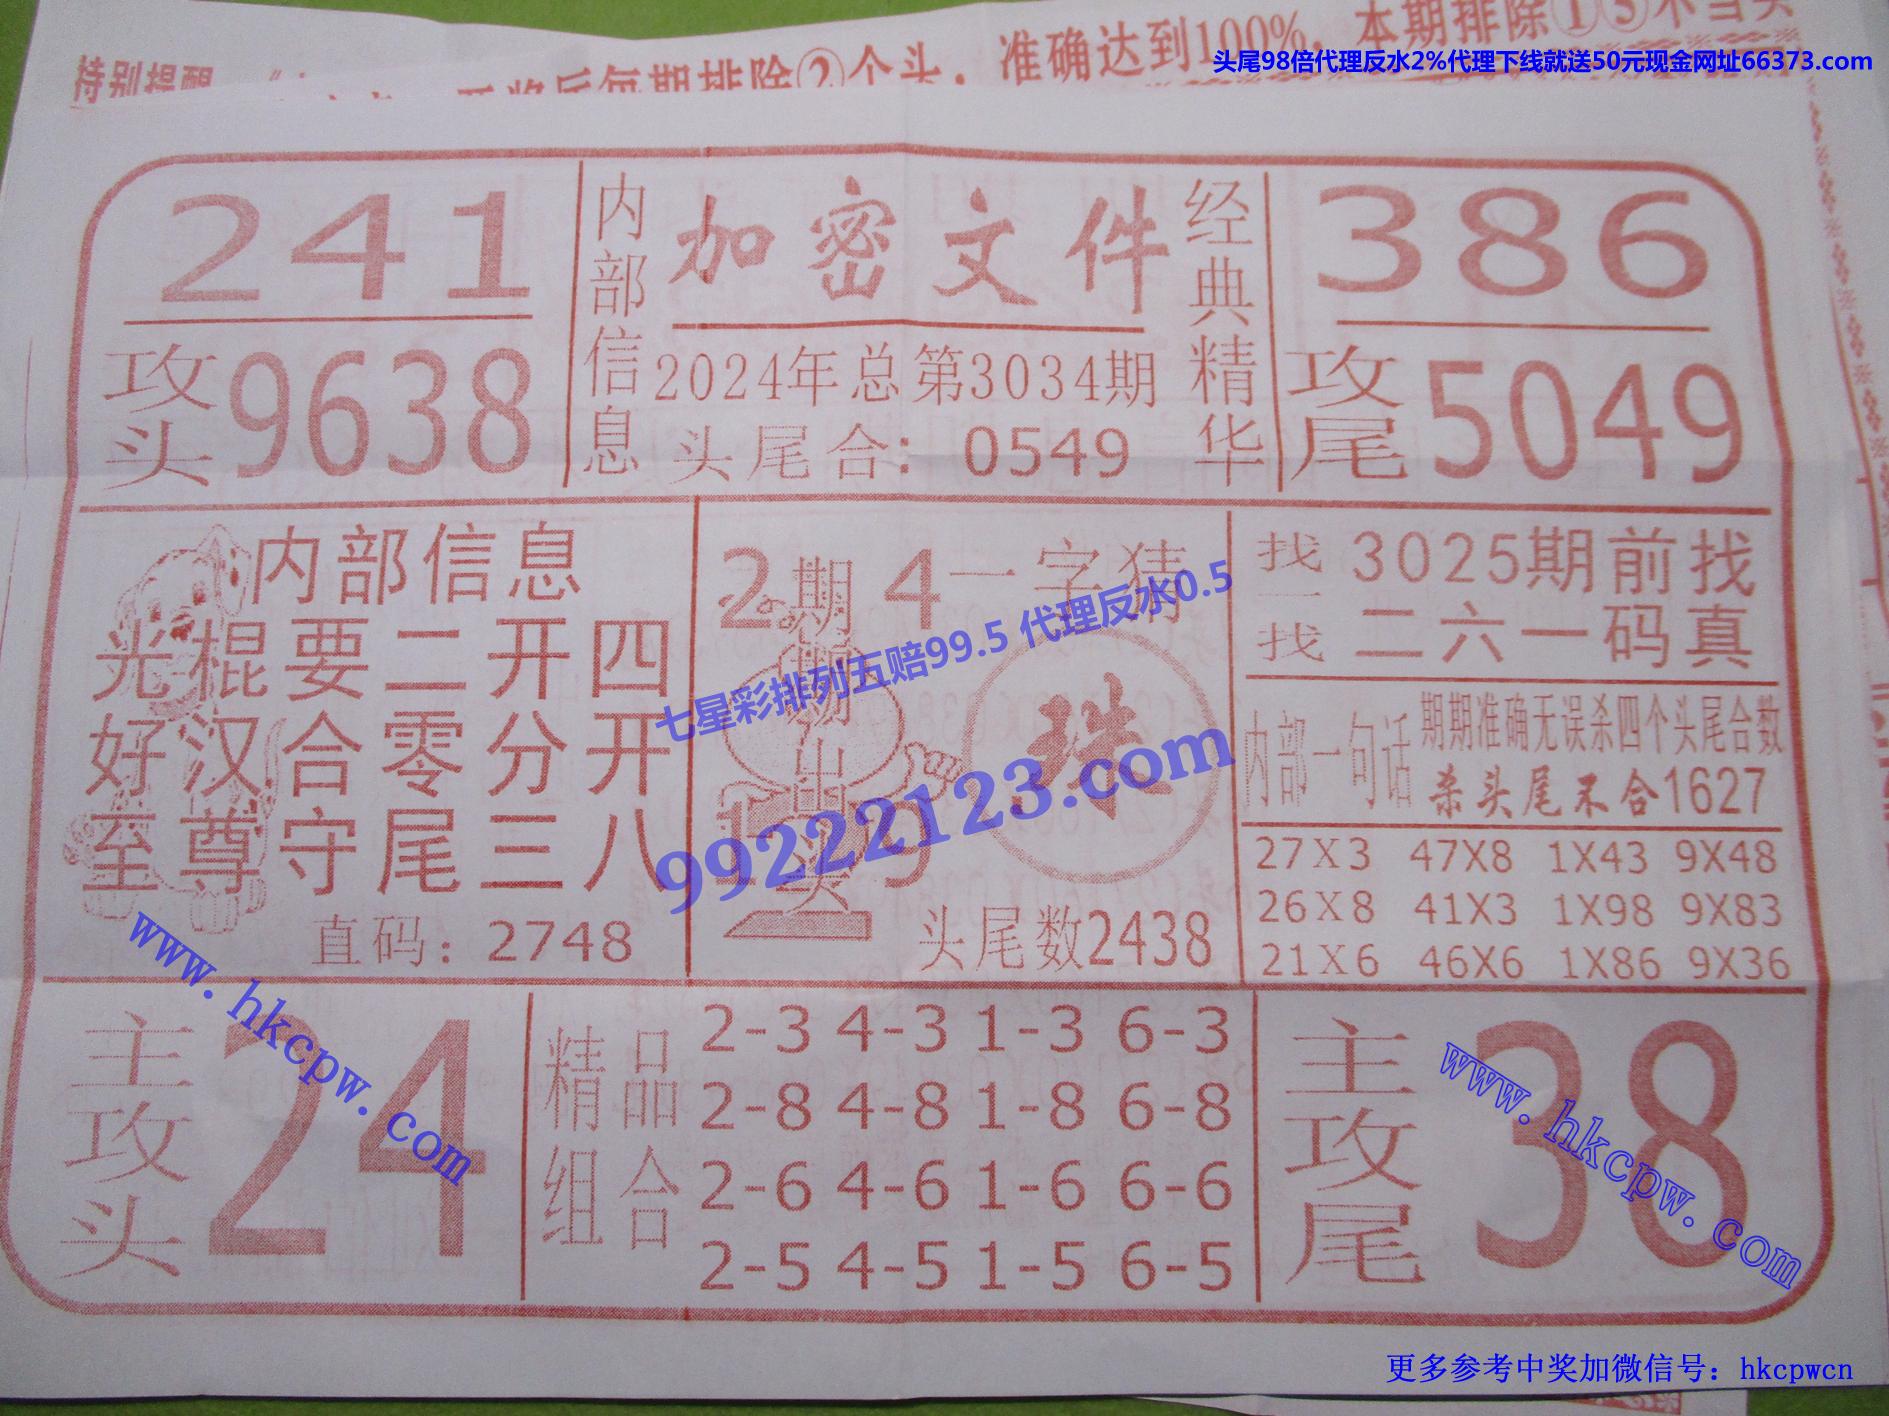 特别提醒
开奖后每期排除②个头，准确达到100%，本期排除①③不当头
头尾98倍代理反水2%代理下线就送50元现金网址66373.com
241
攻头9638
内部信息
加密文件
2024年总第3034期
头尾合：0549
经典精华
386
攻尾5049
内部信息
光棍要二开四
好汉合零分开
至尊守尾三八
直码：2748
2期4一字猜
期期出奖
珠
19
头尾数2438
找一找
3025期前找
二六一码真
内部一句话
期期准确无误杀四个头尾合数
杀头尾不合1627
27X3 47X8 1X43 9X48
26X8 41X3 1X98 9X83
21X6 46X6 1X86 9X36
七星彩排列五赔99.5 代理反水0.5
99222123.com
www.hkcpw.com
主攻头24
精品组合
2-3 4-3 1-3 6-3
2-8 4-8 1-8 6-8
2-6 4-6 1-6 6-6
2-5 4-5 1-5 6-5
主攻尾38
www.hkcpw.com
更多参考中奖加微信号：hkcpwcn